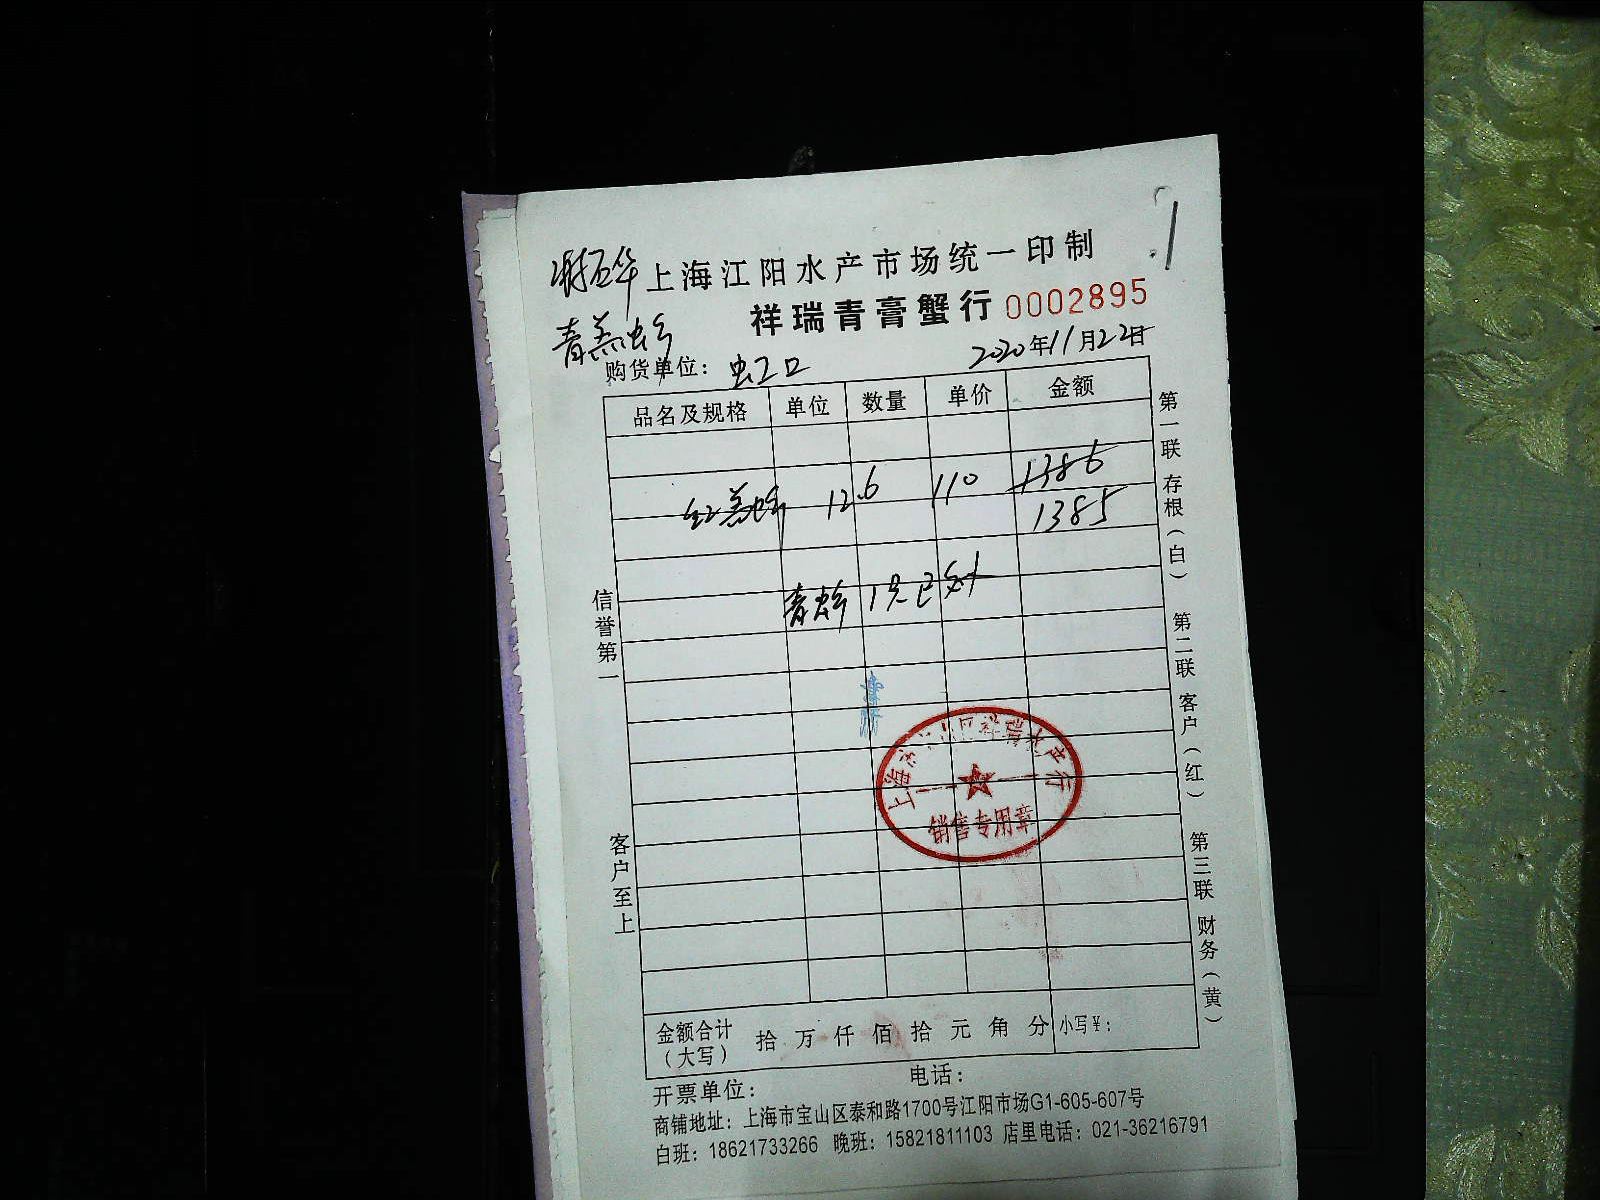 上海江阳水产市场统一印制
祥瑞青膏蟹行 0002895
青羔虫
购货单位：虹口 2020年11月22日
品名及规格 单位 数量 单价 金额
红羔 12.6 110 1386
1385
青 1只已
信誉第一
客户至上
第一联 存根（白） 第二联 客户（红） 第三联 财务（黄）
祥瑞水产行
销售专用章
金额合计（大写） 拾 万 仟 佰 拾 元 角 分 小写¥：
开票单位： 电话：
商铺地址：上海市宝山区泰和路1700号江阳市场G1-605-607号
白班：18621733266 晚班：15821811103 店里电话：021-36216791